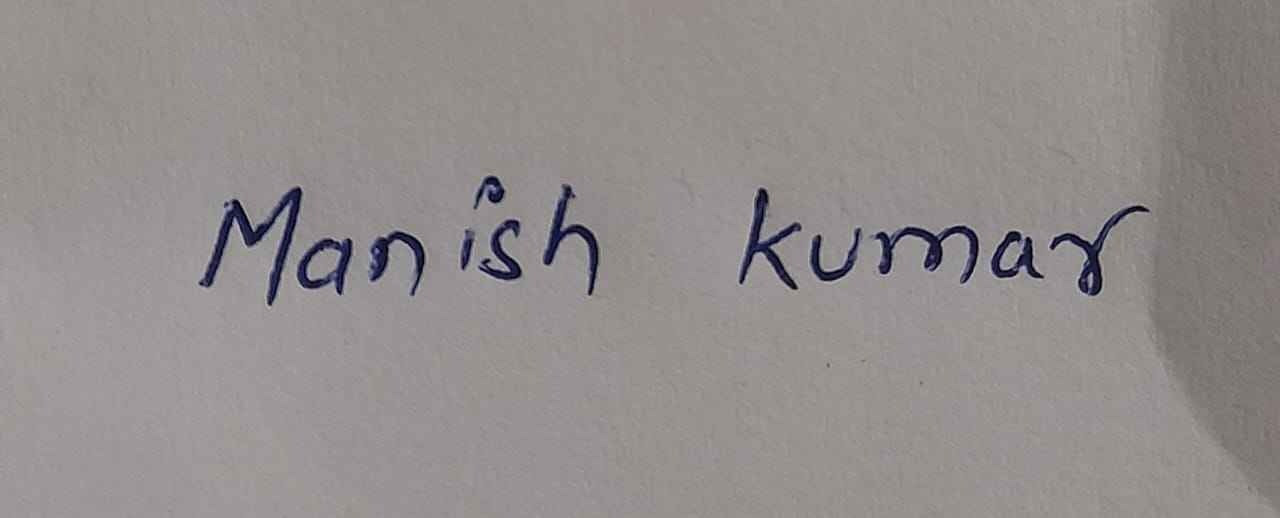 Manish kumar